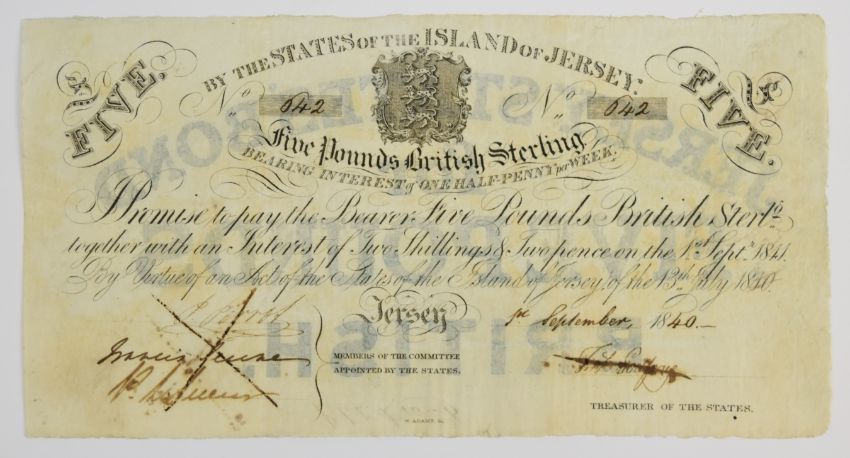 BY THE STATES OF THE ISLAND OF JERSEY.
£ FIVE.
£ FIVE.
No. 642
No. 642
Five Pounds British Sterling
BEARING INTEREST of ONE HALF-PENNY per WEEK.
I Promise to pay the Bearer Five Pounds British Sterl.g
together with an Interest of Two Shillings & Twopence on the 1.st Sept.r 1841.
By Virtue of an Act of the States of the Island of Jersey of the 13.th July 1840.
Jersey 1st September, 1840.
MEMBERS OF THE COMMITTEE
APPOINTED BY THE STATES.
TREASURER OF THE STATES.